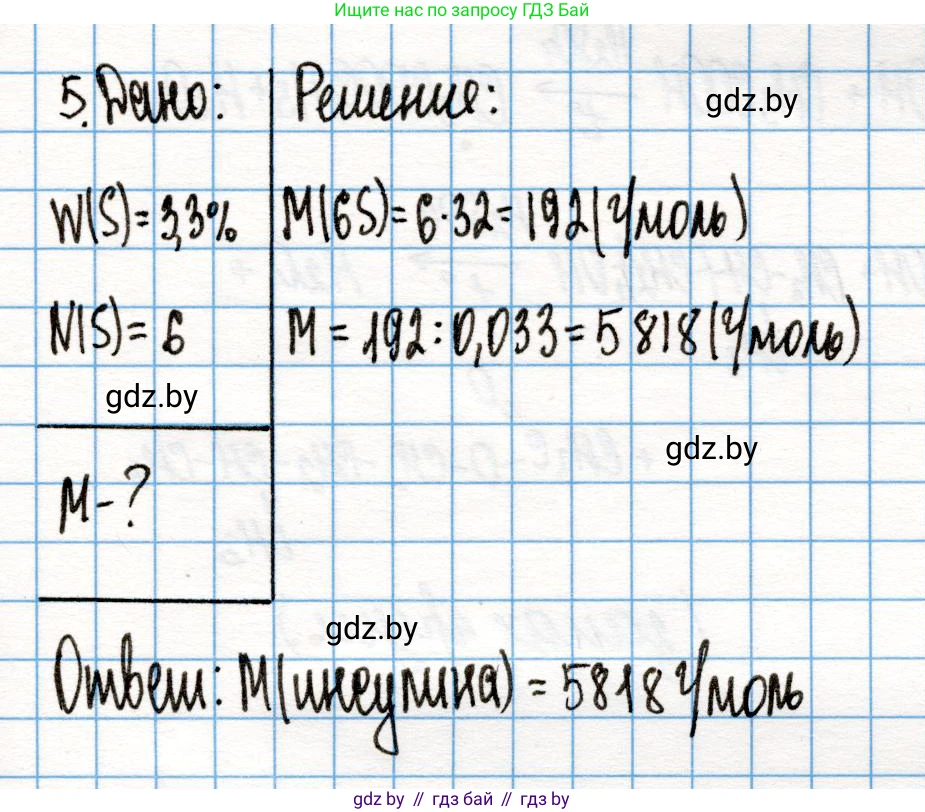 Ищите нас по запросу ГДЗ Бай
5. Дано:
Решение:
gdz.by
W(S) = 3,3%
M(6S) = 6·32 = 192 (г/моль)
N(S) = 6
M = 192 : 0,033 = 5818 (г/моль)
gdz.by
gdz.by
M - ?
gdz.by
Ответ: M(инсулина) = 5818 г/моль
gdz.by // гдз бай // gdz by